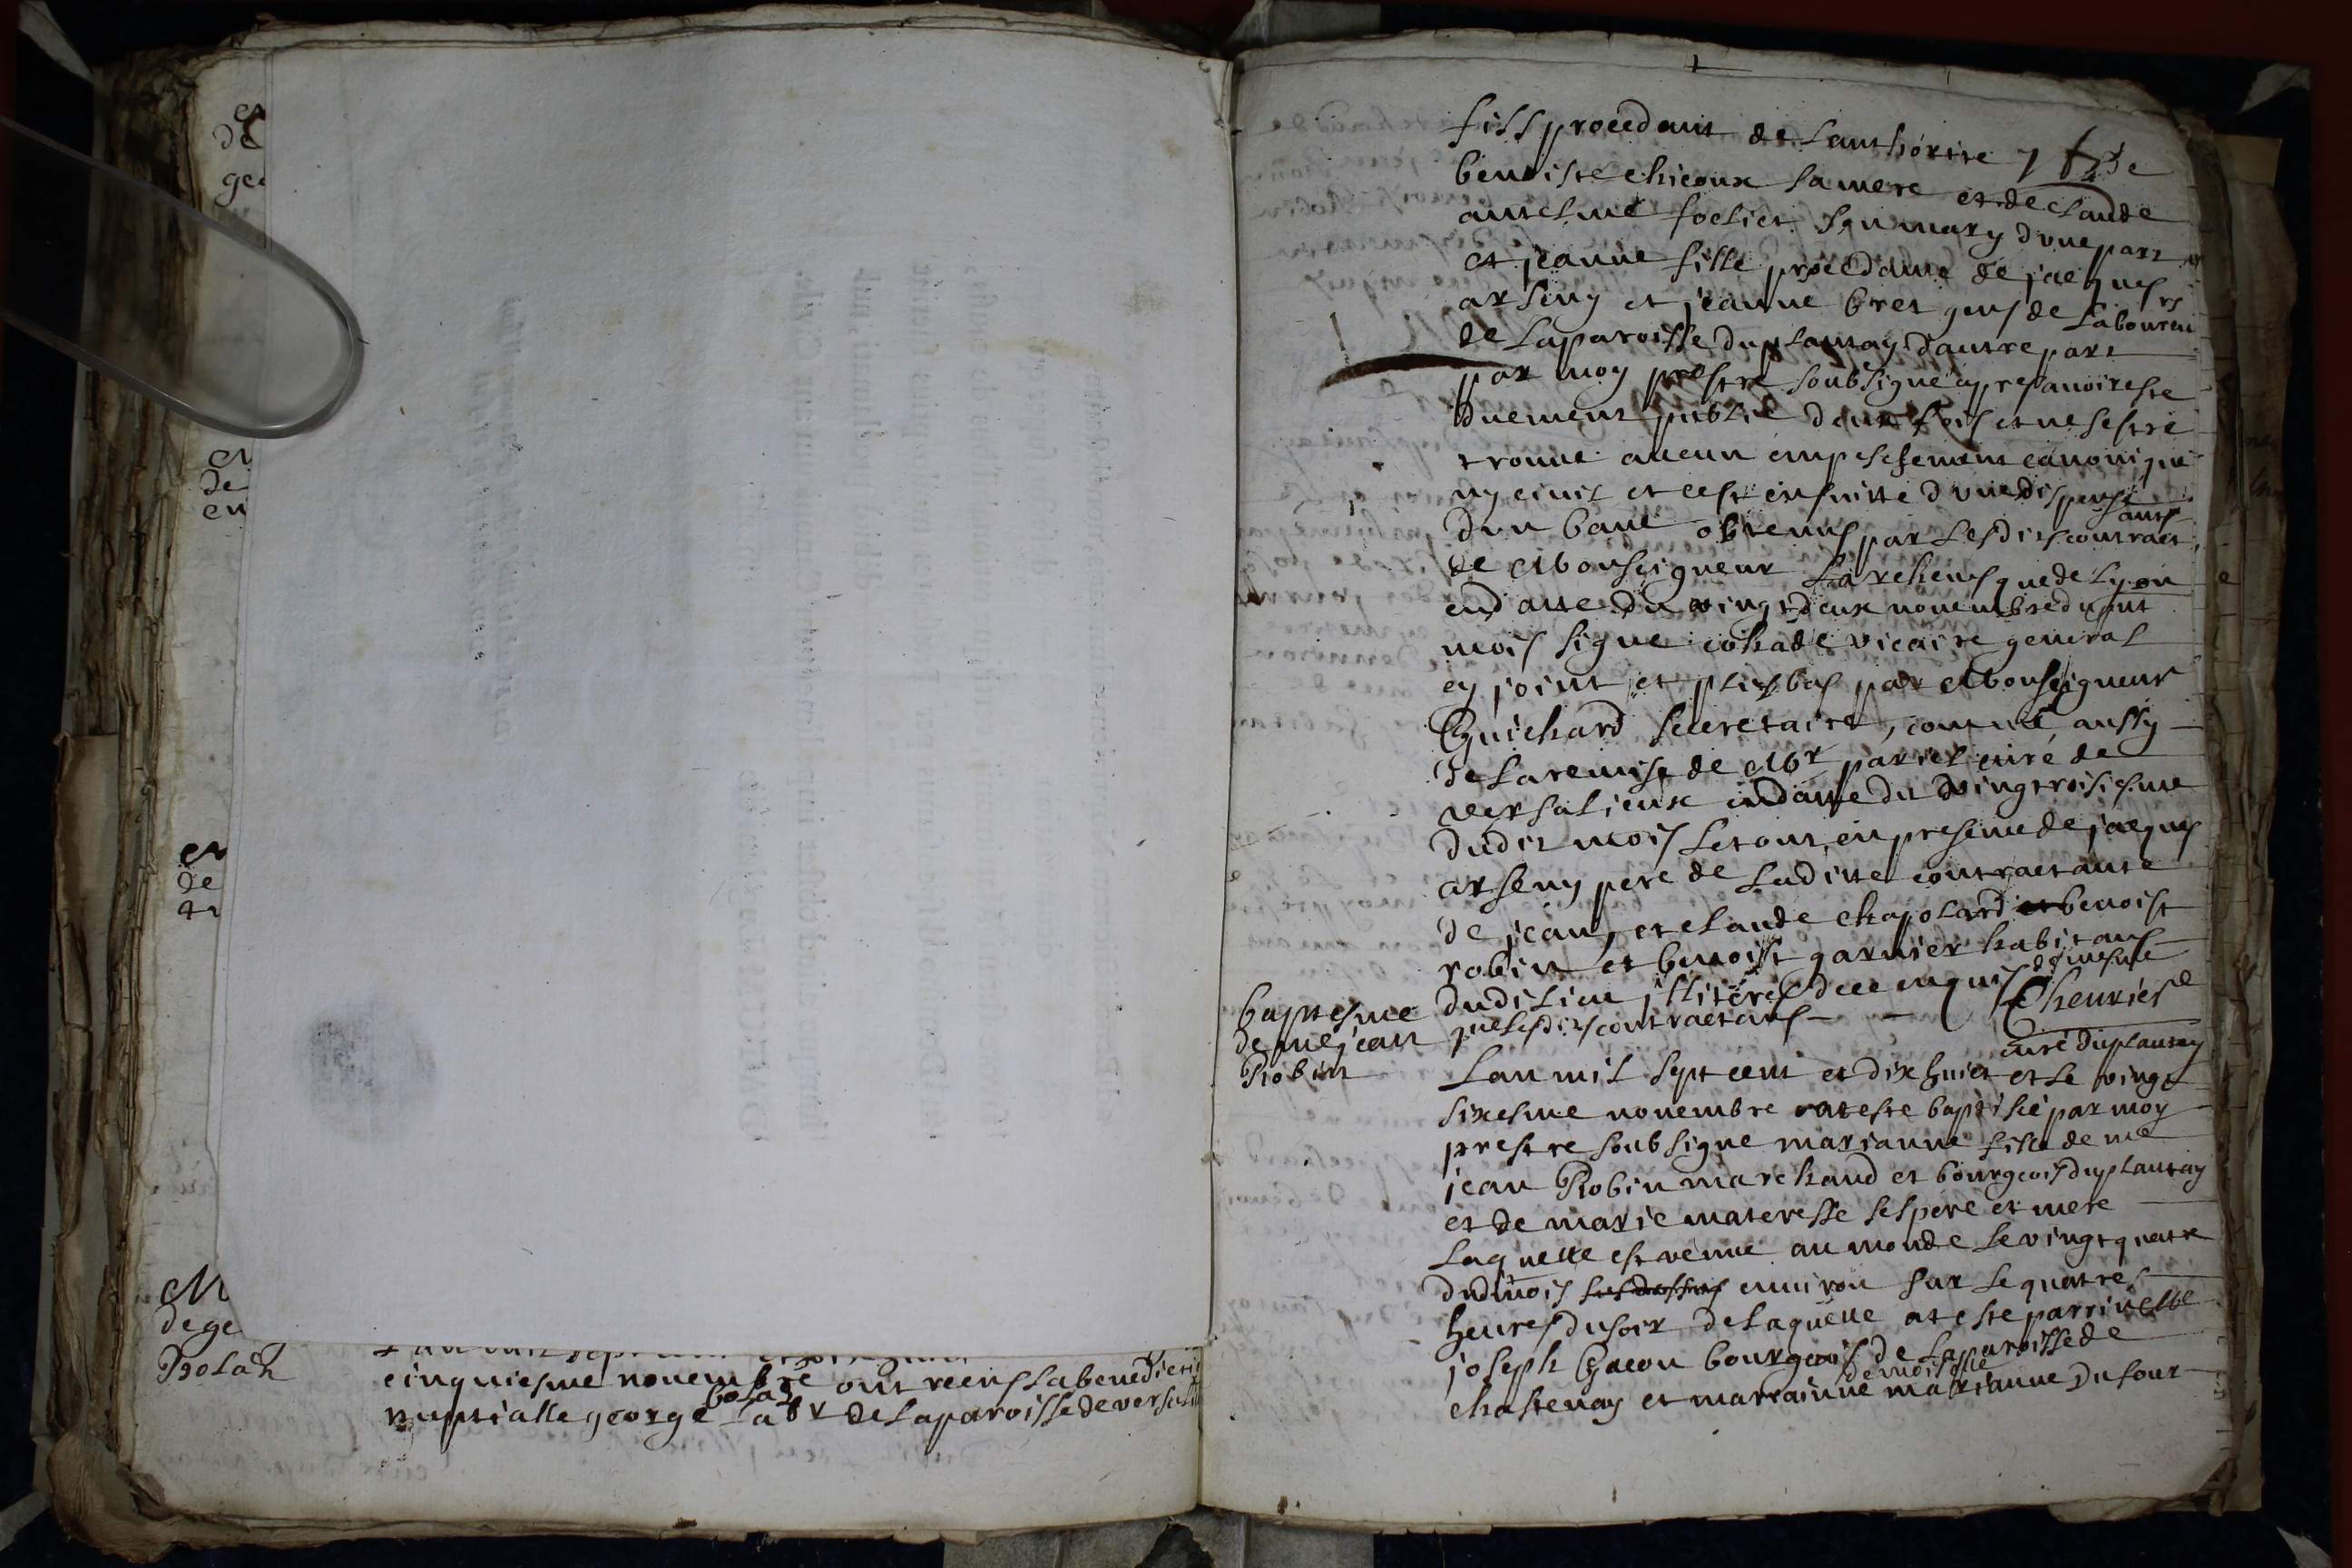 de
en
de
M
de ge
Bolaz
cinquiesme novembre ont receus la benedicti
bolaz
nuptialle george labr de la paroisse de versali
fils procedant de lauthorité de
benoiste chicoux sa mere et de claude
anthelme foeliet son mary dune part
et jeanne fille procedante de jacques
arseny et jeanne bret gens de laboureurs
de la paroisse du plantay dautre part
par moy prestre soubsigné apres avoir esté
duement publié deux fois et ne sestre
trouvé aucun empeschement canonique
ny civil et cest ensuitte dune dispense
dun banc obtenus par lesdits contractants
de Monseigneur larchevesque de Lyon
en datte du vingt deux novembre du pnt
mois signé cohade vicaire general
cy joint et plus bas par Monseigneur
Guichard secretaire, comme aussy
de la remise de Mr pariel curé de
versalieux en datte du vingtroisiesme
dudit mois le tout en presence de jacques
arseny pere de laditte contractante
de jean, et claude chapolard et benoist
robin et benoist garnier habitans
dudit lieu illiteres de ce enquis de mesme
que lesdits contractans - - Cheurier
curé du plantay
baptesme
de me jean
Robin
Lan mil sept cent et dix huict et le vingt
sixesme novembre at esté baptisée par moy
prestre soubsigné marianne fille de me
jean Robin marchand et bourgeois du plantay
et de marie materesse ses pere et mere
laquelle est venue au monde le vingt quatre
dud mois sus dessus environ sur le quatres
heures du soir de laquelle at esté parrin
joseph Gacon bourgeois de la paroisse de
demoiselle
chastenay et marrainne marianne Dufour